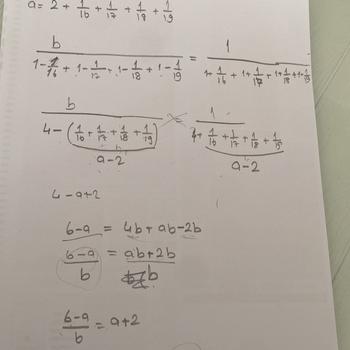 a = 2 + 1/16 + 1/17 + 1/18 + 1/19
b / (1 - 1/16 + 1 - 1/17 + 1 - 1/18 + 1 - 1/19) = 1 / (1 + 1/16 + 1 + 1/17 + 1 + 1/18 + 1 + 1/19)
b / (4 - (1/16 + 1/17 + 1/18 + 1/19)) = 1 / (4 + 1/16 + 1/17 + 1/18 + 1/19)
a-2 a-2
4 - a + 2
6-a = 4b + ab - 2b
(6-a)/b = (ab + 2b)/b
(6-a)/b = a + 2